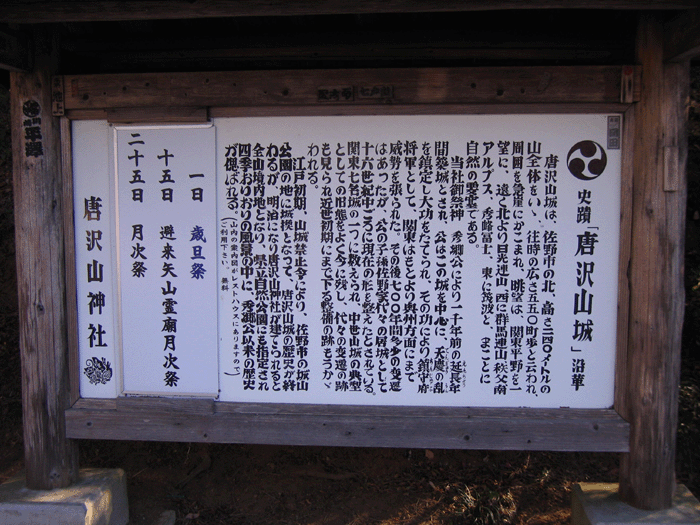 史蹟「唐沢山城」沿革
唐沢山城は、佐野市の北、高さ二四〇メイトルの
山全体をいゝ、往時の広さ五五〇町歩と云われ、
周囲を急崖にかこまれ、眺望は、関東平野を一
望に、遠く北より日光連山、西に群馬連山、秩父南
アルプス、秀峰富士、東に筑波と、まことに
自然の要害である。
当社御祭神 秀郷公により一千年前の延長年
間築城とされ、公はこの城を中心に、天慶の乱
を鎮定し大功をたてられ、その功により鎮守府
将軍として、関東はもとより奥州方面にまで
威勢を張られた。その後七〇〇年間多少の変遷
はあったが、公の子孫佐野家代々の居城として
十六世紀中ごろに現在の形を整えたとされている。
関東七名城の一つに数えられ、中世山城の典型
としての旧態をよく今に残し、代々の変遷の跡
も見られ近世初期にまで下る整備の跡もうかゞ
われる。
江戸初期、山城禁止令により、佐野市の城山
公園の地に城換となって、唐沢山城の歴史が終
わるが、明治になり唐沢山神社が建てられると
全山境内地となり、県立自然公園にも指定され
四季おりおりの風景の中に、秀郷公以来の歴史
が偲ばれる。(山内の案内図がレストハウスにありますので
ご利用下さい。 無料)
一日 歳旦祭
十五日 避来矢山霊廟月次祭
二十五日 月次祭
唐沢山神社